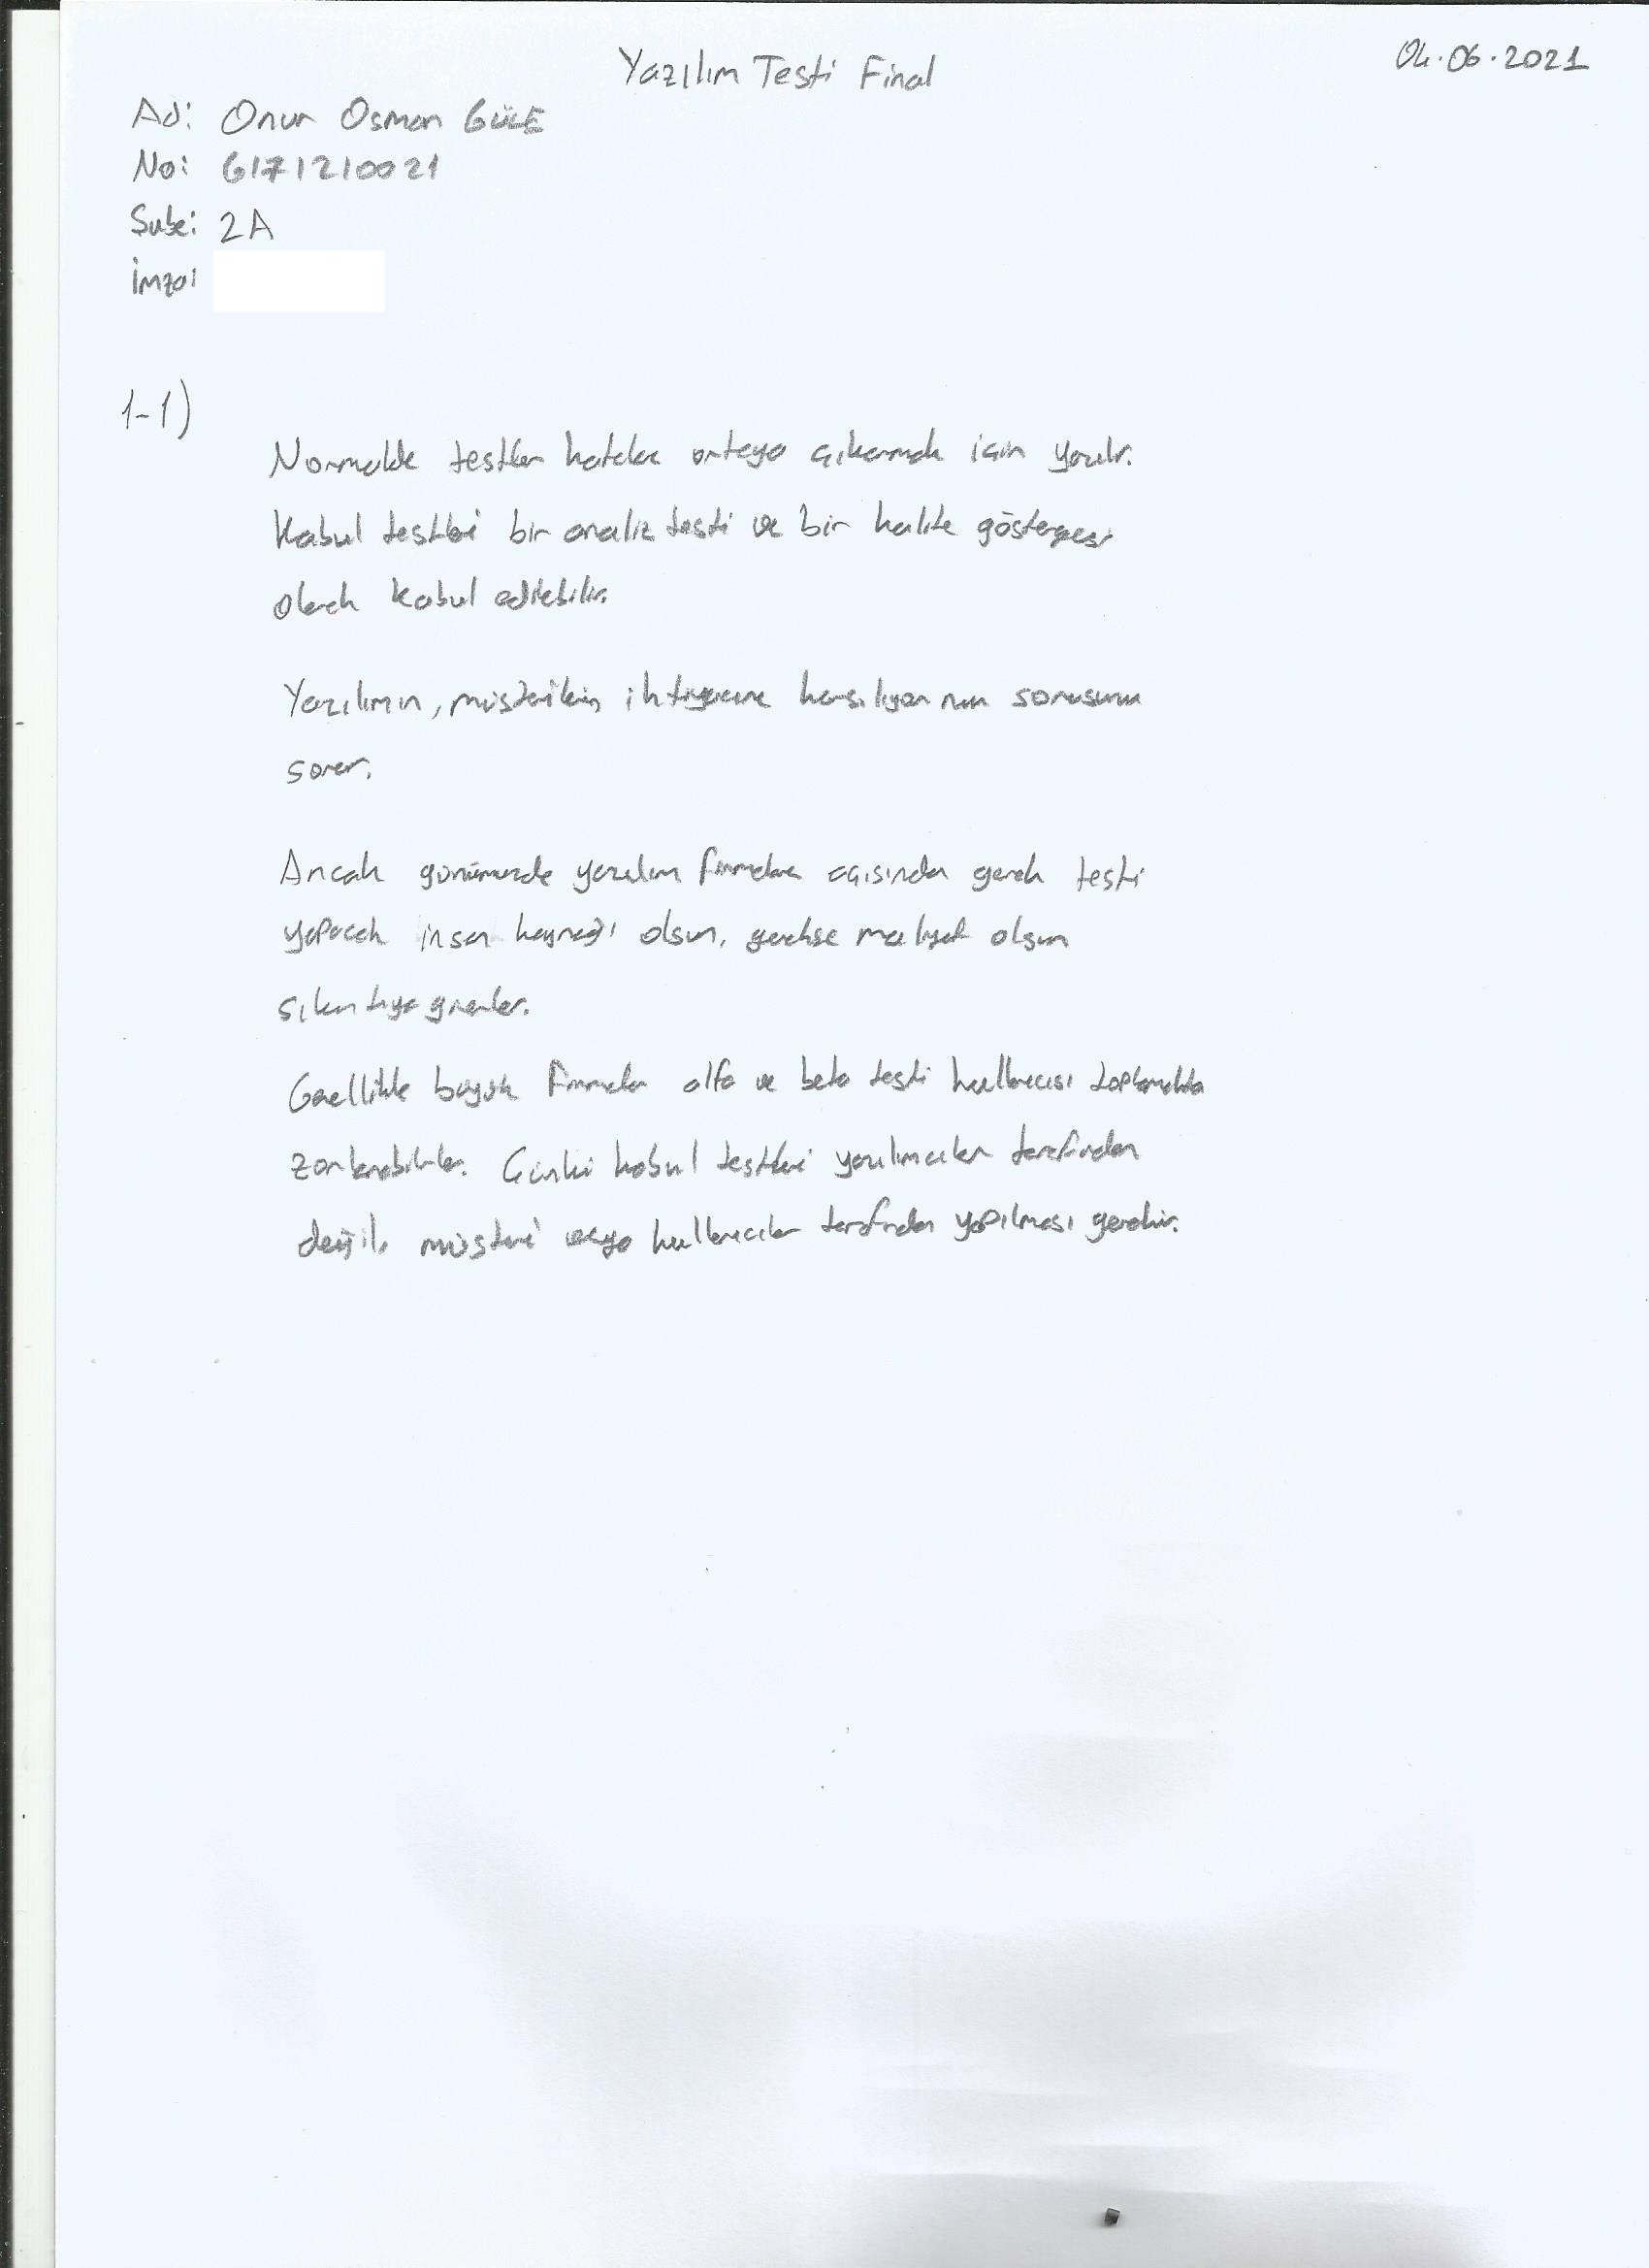 Yazılım Testi Final
04.06.2021
Ad: Onur Osman GÜLE
No: 6171210021
Şube: 2A
İmza:
1-1)
Normalde testler hatalar ortaya çıkarmak için yazılır.
Kabul testleri bir analiz testi ve bir kalite göstergesi
olarak kabul edilebilir.
Yazılımın, müşterilerin ihtiyacını karşılıyor mu sorusunu
sorar.
Ancak günümüzde yazılım firmaları açısından gerek testi
yapacak insan kaynağı olsun, gerekse maliyet olsun
sıkıntıya girerler.
Genellikle büyük firmalar alfa ve beta testi kullanıcısı toplamakta
zorlanabilirler. Çünkü kabul testleri yazılımcılar tarafından
değil, müşteri veya kullanıcılar tarafından yapılması gerekir.